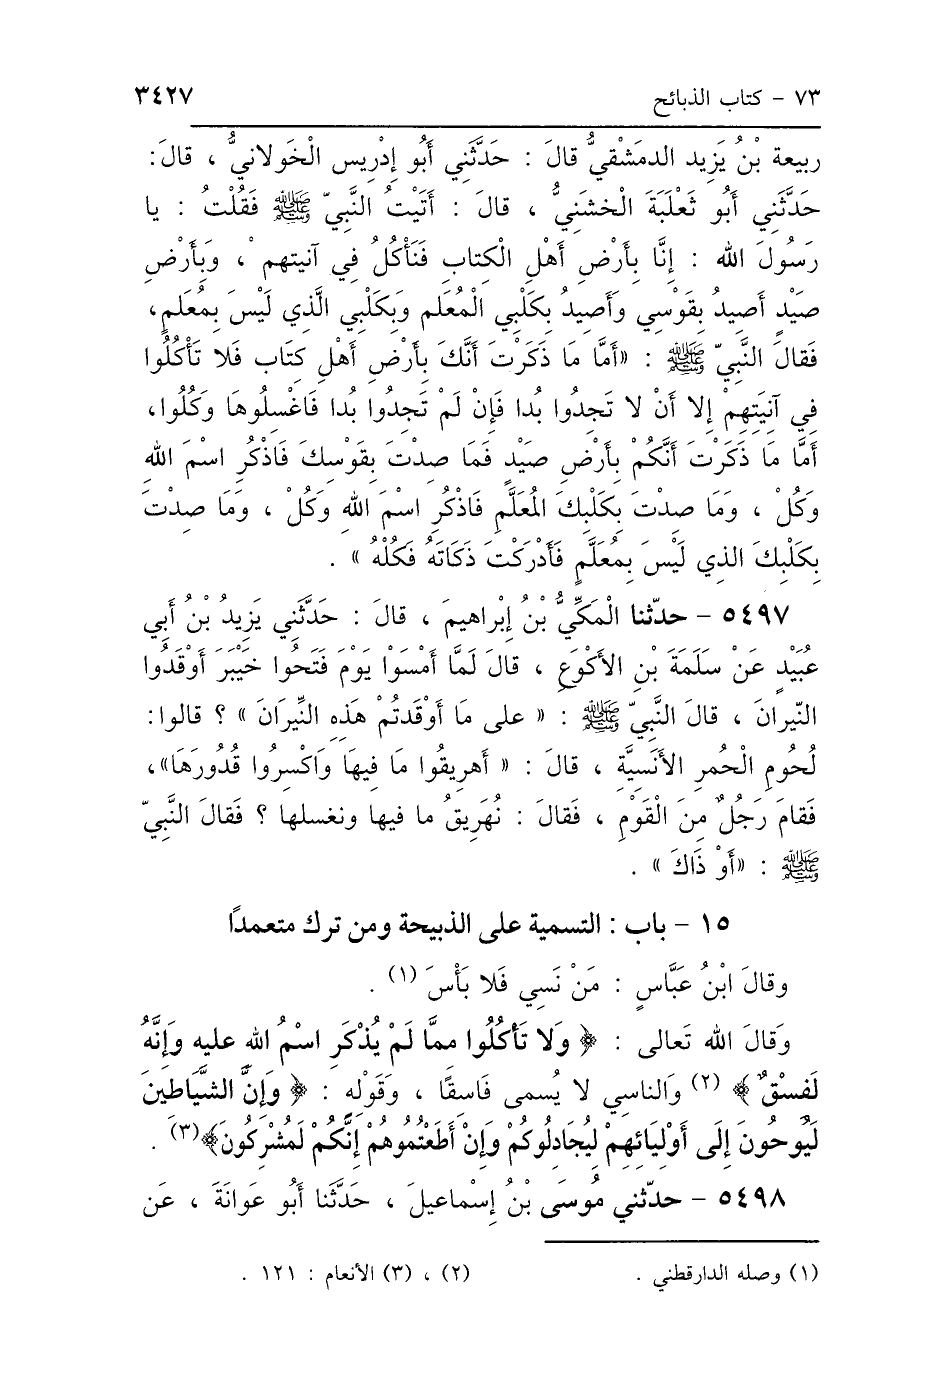 ٧٣ – كتاب الذبائح ٣٤٢٧
ربيعة بْنُ يَزِيد الدمَشْقيُّ قالَ : حَدَّثَنِي أَبُو إِدْرِيس الْخَولانيُّ ، قالَ:
حَدَّثَنِي أَبُو ثَعْلَبَةَ الْخشَنيُّ ، قالَ : أَتَيْتُ النَّبِيّ ﷺ فَقُلْتُ : يا
رَسُولَ الله : إِنَّا بِأَرْضِ أَهْلِ الْكتابِ فَنَأْكُلُ فِي آنيتهمْ ، وَبِأَرْضِ
صَيْدٍ أَصِيدُ بِقَوْسِي وأَصِيدُ بِكَلْبِي الْمُعَلم وَبِكَلْبِي الَّذي لَيْسَ بِمُعَلمٍ،
فَقالَ النَّبِيّ ﷺ : «أَمَّا مَا ذَكَرْتَ أَنَّكَ بِأَرْضِ أَهْلِ كتَاب فَلا تَأْكُلُوا
فِي آنيَتِهِمْ إلا أَنْ لا تَجدُوا بُدا فَإِنْ لَمْ تَجدُوا بُدا فَاغْسلُوهَا وَكُلُوا،
أَمَّا مَا ذَكَرْتَ أَنَّكُمْ بِأَرْضِ صَيْدٍ فَمَا صدْتَ بِقَوْسكَ فَاذْكُرِ اسْمَ الله
وَكُلْ ، وَمَا صدْتَ بِكَلْبِكَ الْمُعَلَّمِ فَاذْكُرِ اسْمَ اللهِ وَكُلْ ، وَمَا صِدْتَ
بِكَلْبِكَ الذي لَيْسَ بِمُعَلَّمٍ فَأَدْرَكْتَ ذَكَاتَهُ فَكُلْهُ» .
٥٤٩٧ – حدّثنا الْمَكِّيُّ بْنُ إِبْراهيمَ ، قالَ : حَدَّثَنِي يَزِيدُ بْنُ أَبِي
عُبَيْدٍ عَنْ سَلَمَةَ بْنِ الأَكْوَعِ ، قالَ لَمَّا أَمْسَوْا يَوْمَ فَتَحُوا خَيْبَرَ أَوْقَدُوا
النّيرانَ ، قالَ النَّبِيّ ﷺ : « على مَا أَوْقَدتُمْ هَذِهِ النِّيرَانَ » ؟ قالوا:
لُحُومِ الْحُمرِ الأَنَسيَّةِ ، قالَ : « أَهرِيقُوا مَا فِيهَا وَاكْسِرُوا قُدُورَهَا»،
فَقامَ رَجُلٌ مِنَ الْقَوْمِ ، فَقالَ : نُهَرِيقُ ما فيها ونغسلها ؟ فَقالَ النَّبِيّ
ﷺ : «أَوْ ذَاكَ » .
١٥ – باب : التسمية على الذبيحة ومن ترك متعمدًا
وقالَ ابْنُ عَبَّاسٍ : مَنْ نَسِي فَلا بَأْسَ (١) .
وَقالَ الله تَعالى : ﴿ وَلا تَأكُلُوا ممَّا لَمْ يُذْكَرِ اسْمُ الله عليه وَإِنَّهُ
لَفسْقٌ ﴾ (٢) وَالناسي لا يُسمى فَاسقًا ، وَقَوْلِهِ : ﴿ وَإِنَّ الشَّيَاطينَ
لَيُوحُونَ إِلَى أَوْلِيَائِهِمْ لِيُجَادلُوكُمْ وَإِنْ أَطَعْتُمُوهُمْ إِنَّكُمْ لَمُشْرِكُونَ﴾(٣) .
٥٤٩٨ – حدّثني مُوسَى بْنُ إسْماعيلَ ، حَدَّثَنا أَبُو عَوانَةَ ، عَن
(١) وصله الدارقطني . (٢) ، (٣) الأنعام : ١٢١ .